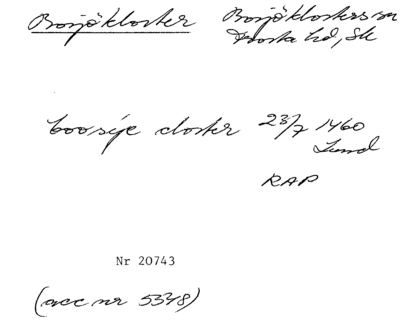 Bosjökloster Bosjöklosters sn
Frosta hd, Sk
boosiße closter 23/7 1460
Lund
RAP
Nr 20743
(acc nr 5348)